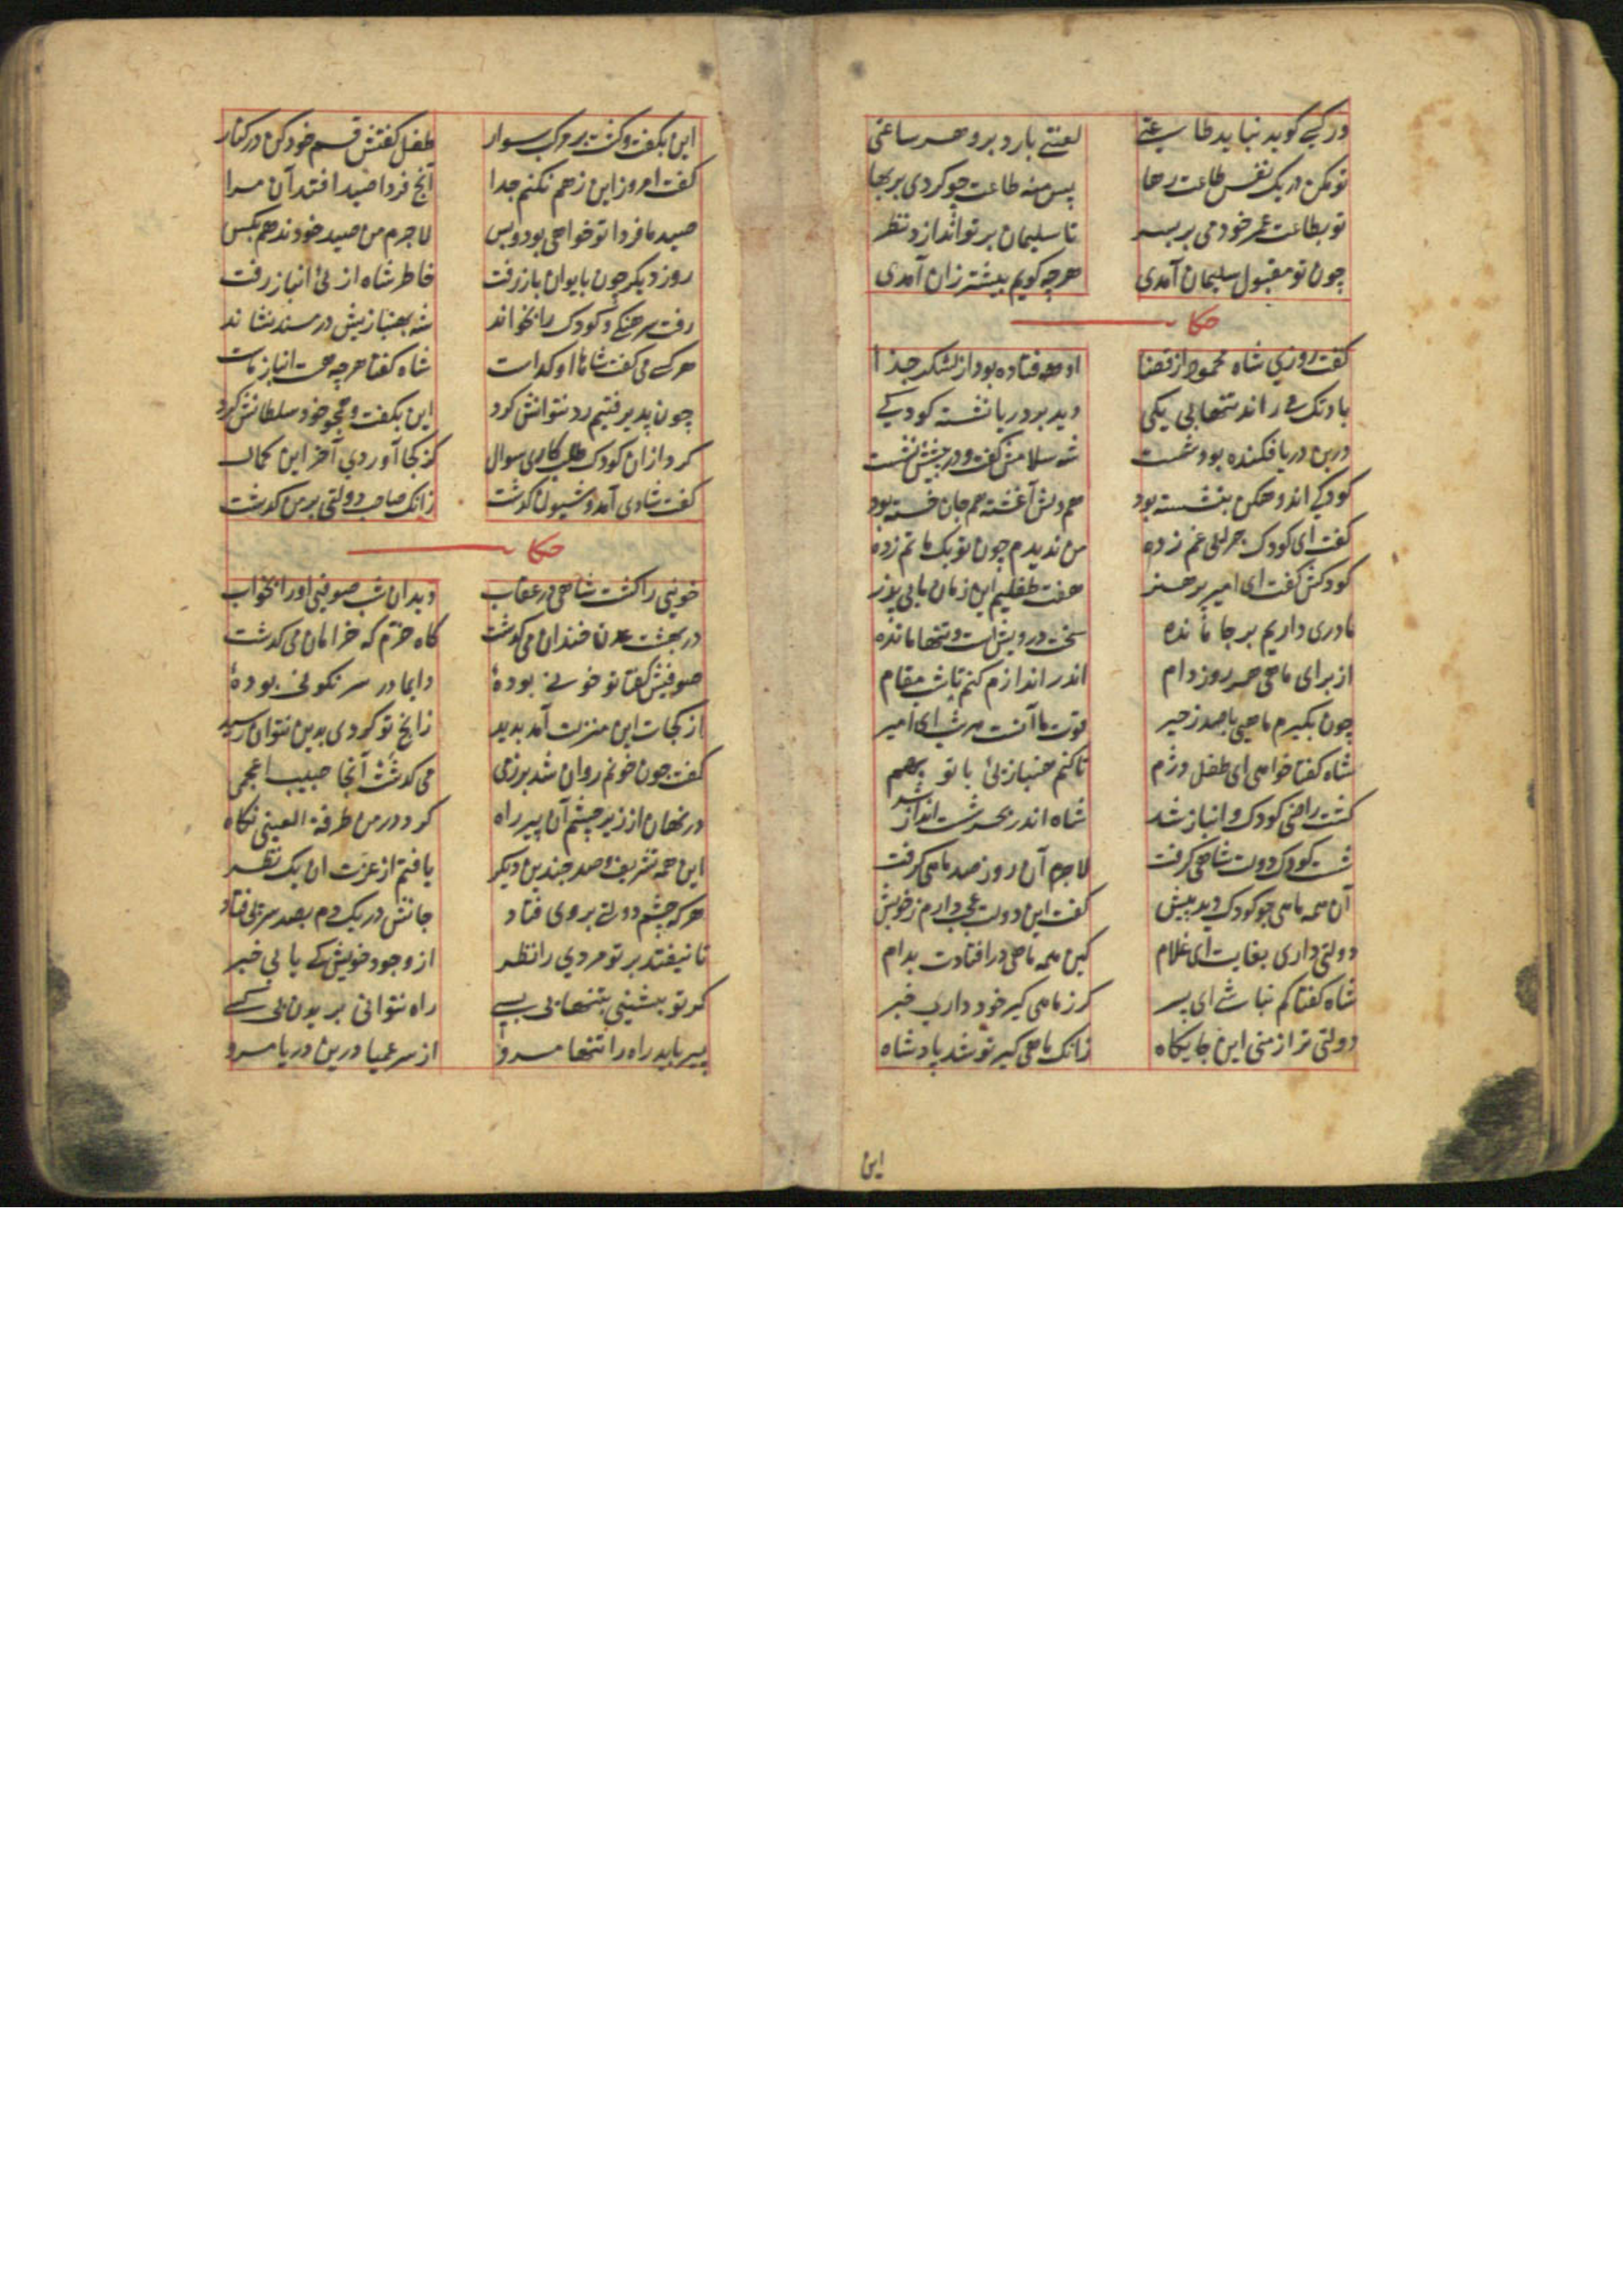 ور کسی گوید نباید طاعتی لعنتی بارد برو هر ساعتی
تو مکن در یک نفس طاعت رها پس منه طاعت چو کردی بر بها
تو بطاعت عمر خود می بر بسر تا سلیمان بر تو اندازد نظر
چون تو مقبول سلیمان آمدی هرچه گویم بیشتر زان آمدی
حکایت
گفت روزی شاه محمود از قضا اوفتاده بود از لشکر جدا
بادتک می راند تنها بی یکی دید بر دریا نشسته کودکی
درین دریا فکنده بود شست شه سلامش گفت و در پیشش نشست
کودکی اندوهگن بنشسته بود هم دلش آغشته هم جان خسته بود
گفت ای کودک چرایی غم زده من ندیدم چون تو یک ماتم زده
کودکش گفت ای امیر پر هنر هفت طفلیم این زمان ما بی پدر
مادری داریم بر جا مانده سخت درویش است و تنها مانده
از برای ماهی هر روز دام اندر اندازم کنم تا شب مقام
چون بگیرم ماهیی با صد زحیر قوت ما آنست هر شب ای امیر
شاه گفتا خواهی ای طفل دژم تا کنم هنبازئی با تو بهم
گشت راضی کودک و انباز شد شاه اندر بحر شست انداز شد
شست کودک دولت شاهی گرفت لاجرم آن روز صد ماهی گرفت
آن همه ماهی چو کودک دید پیش گفت این دولت عجب دارم ز خویش
دولتی داری بغایت ای غلام کین همه ماهی درافتادت بدام
شاه گفتا گم نباشی ای پسر گر ز ماهی گیر خود داری خبر
دولتی تر از منی این جایگاه زانک ماهی گیر تو شد پادشاه
این
این بگفت و گشت بر مرکب سوار طفل گفتش قسم خود کن در کنار
گفت امروز این زهم نکنم جدا آنچ فردا صید افتد آن مرا
صید ما فردا تو خواهی بود و بس لاجرم من صید خود ندهم بکس
روز دیگر چون بایوان باز رفت خاطر شاه از پی انباز رفت
رفت سرهنگی و کودک را بخواند شه بهنبازیش در مسند نشاند
هر کسی می گفت شاها او گداست شاه گفتا هرچه هست انباز ماست
چون پذیرفتیم رد نتوانش کرد این بگفت و همچو خود سلطانش کرد
کرد از آن کودک طلب کاری سوال کز کجا آوردی آخر این کمال
گفت شادی آمد و شیون گذشت زانک صاحب دولتی بر من گذشت
حکایت
خونیی را کشت شاهی در عقاب دید آن شب صوفیی او را بخواب
در بهشت عدن خندان می گذشت گاه خرم گه خرامان می گذشت
صوفیش گفتا تو خونی بودهٔ دایما در سر نگونی بودهٔ
از کجات این منزلت آمد پدید زانچ تو کردی بدین نتوان رسید
گفت چون خونم روان شد بر زمی می گذشت آنجا حبیب اعجمی
در نهان از زیر چشم آن پیر راه کرد در من طرفة العینی نگاه
این همه تشریف و صد چندین دیگر یافتم از عزت آن یک نظر
هر که چشم دولتی بر وی فتاد جانش در یک دم بصد سر پی فتاد
تا نیفتد بر تو مردی را نظر از وجود خویش کی یابی خبر
گر تو بنشینی بتنهایی بسی راه نتوانی بریدن بی کسی
پیر باید راه را تنها مرو از سر عمیا درین دریا مرو